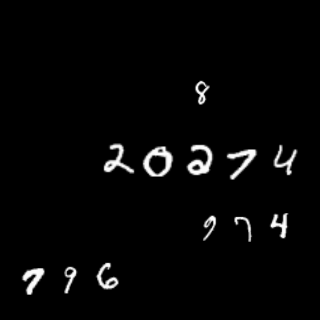 8
20274
974
796